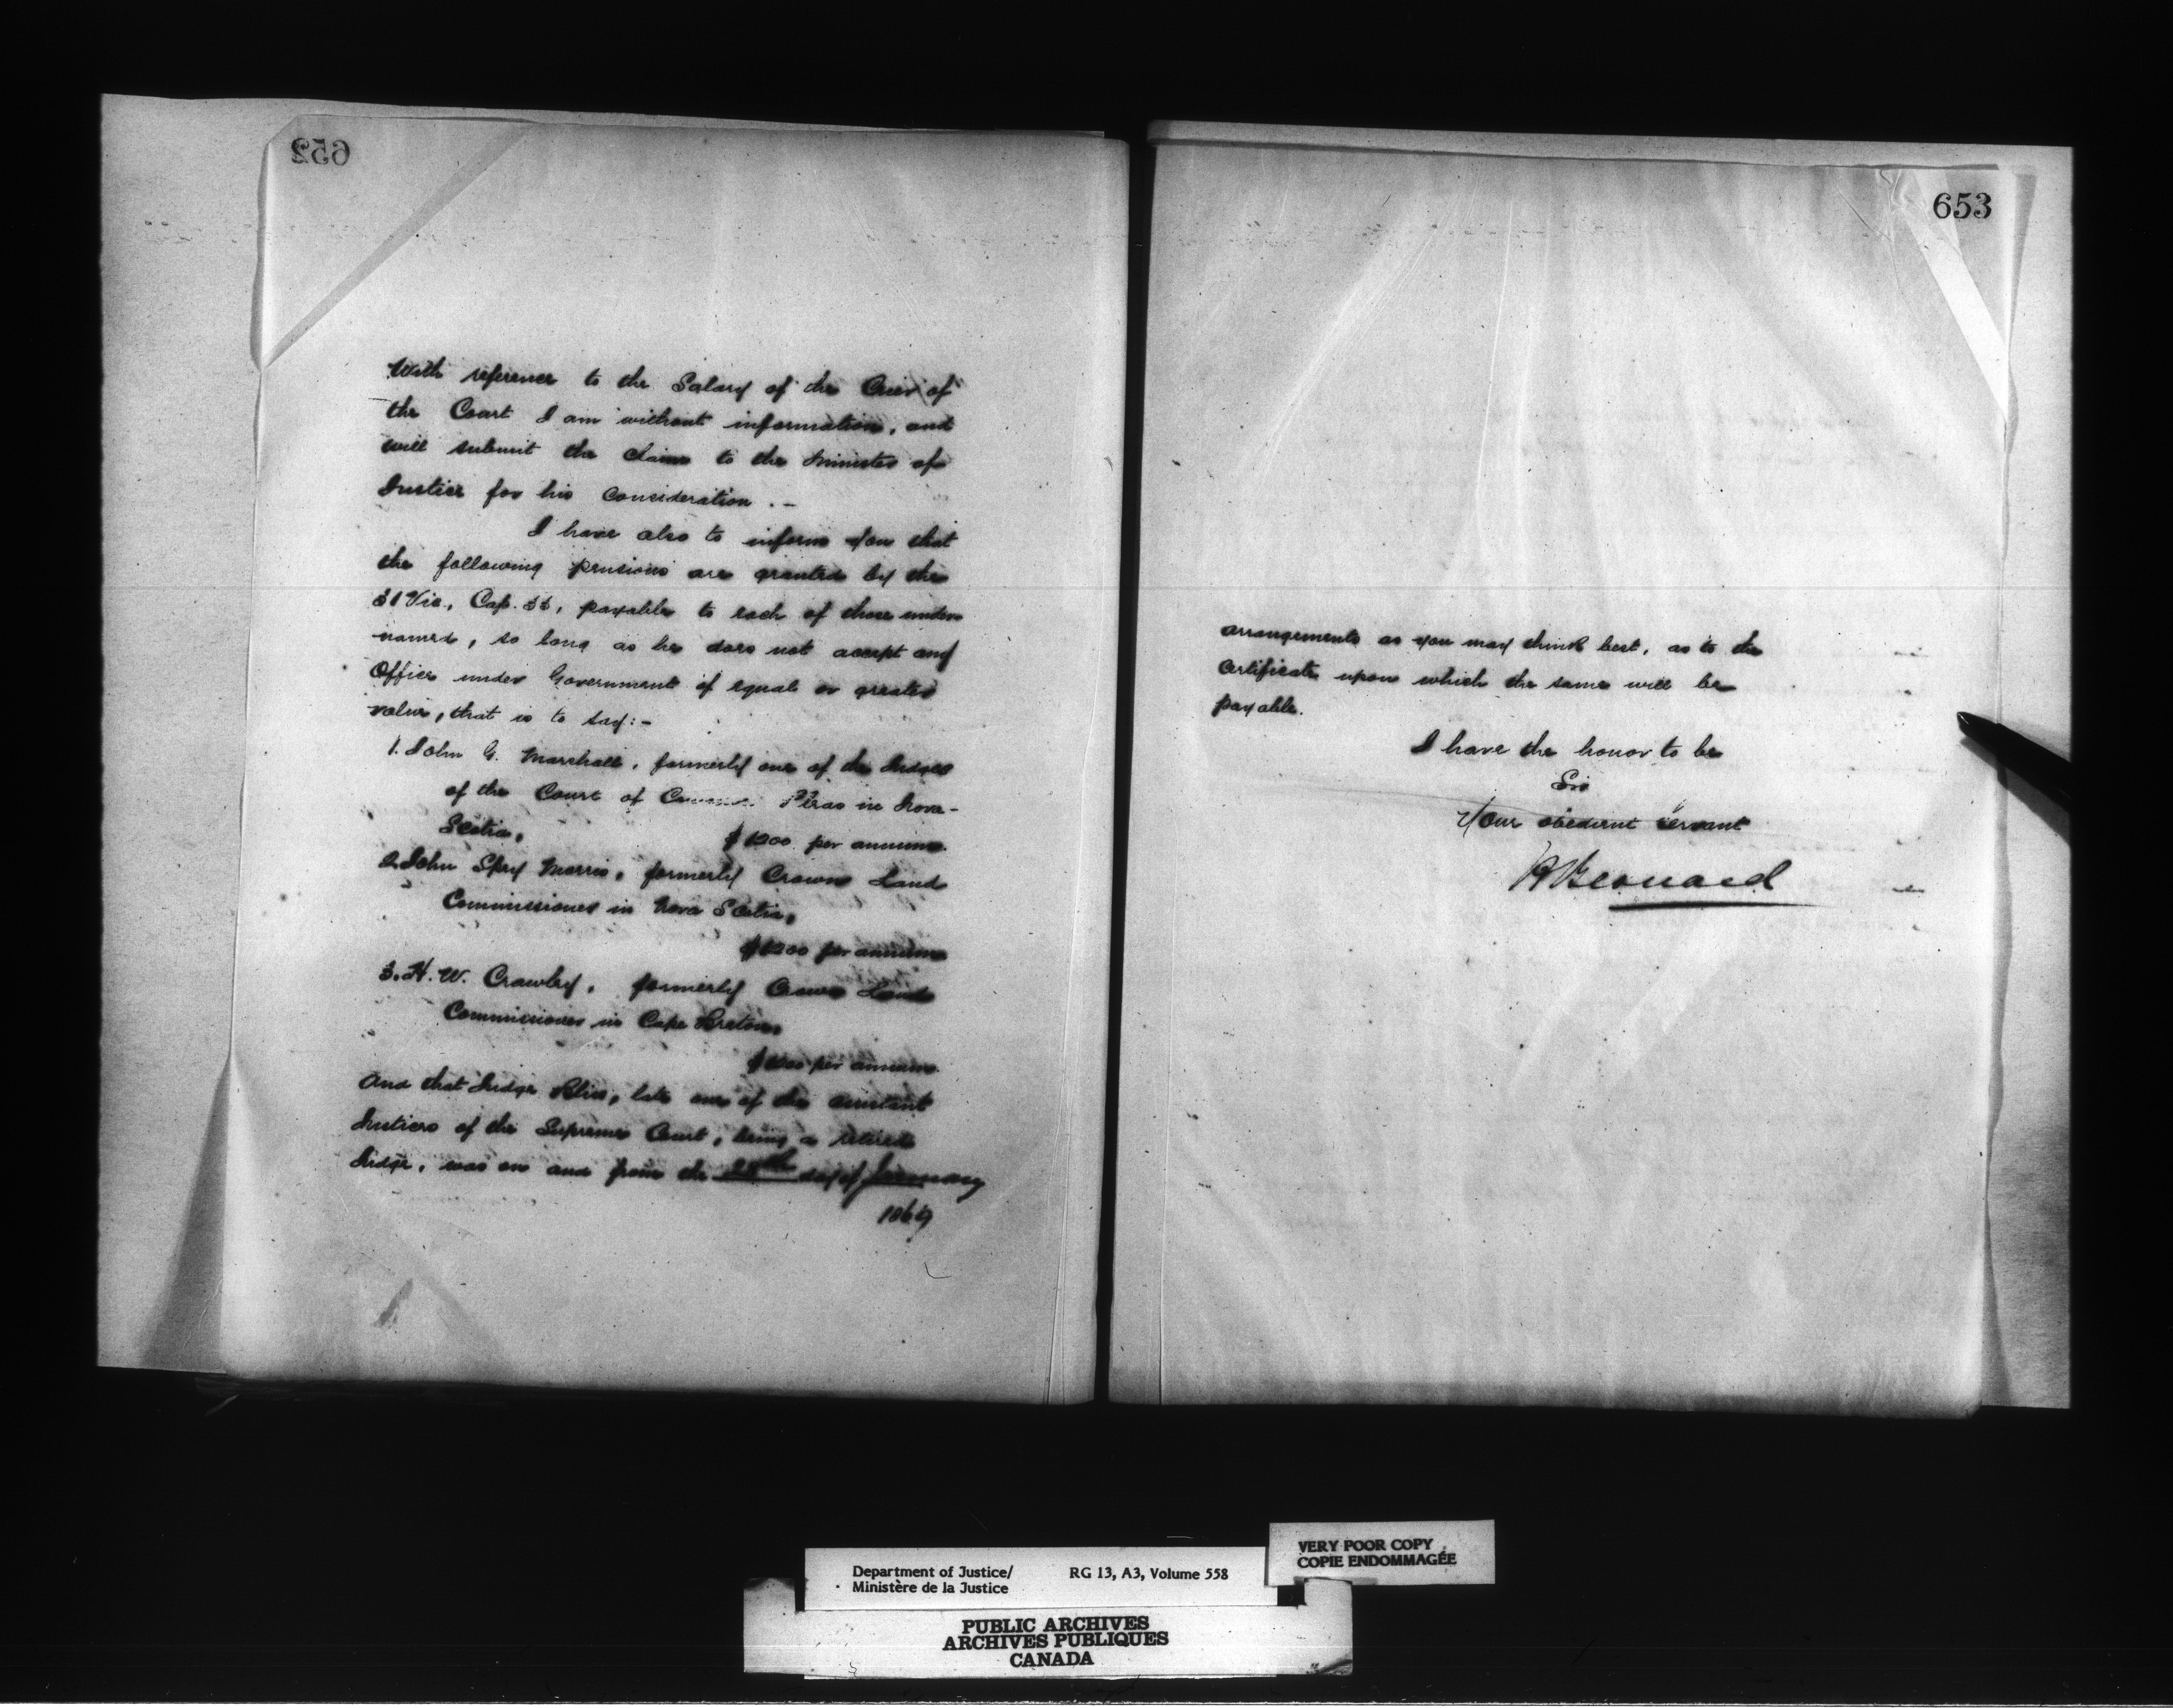 652
With reference to the Salary of the Crier of
the Court I am without information, and
will submit the claim to the Minister of
Justice for his consideration . -
I have also to inform you that
the following pensions are granted by the
31 Vic., Cap. 33, payable to each of those under
named, so long as he does not accept any
Office under Government of equal or greater
value, that is to say:-
1. John G. Marshall, formerly one of the Judges
of the Court of Common Pleas in Nova-
Scotia, $1200 per annum.
2. John Spry Morris, formerly Crown Land
Commissioner in Nova Scotia,
$1200 per annum
3. H. W. Crawley, formerly Crown Land
Commissioner in Cape Breton,
per annum.
And that Judge Bliss, late one of the assistant
Justices of the Supreme Court, being a retired
Judge, was on and from the day of January
1869
653
arrangements as you may think best, as to the
Certificate upon which the same will be
payable.
I have the honor to be
Sir
Your obedient servant
H Bernard
Department of Justice/
Ministère de la Justice
RG 13, A3, Volume 558
VERY POOR COPY
COPIE ENDOMMAGÉE
PUBLIC ARCHIVES
ARCHIVES PUBLIQUES
CANADA